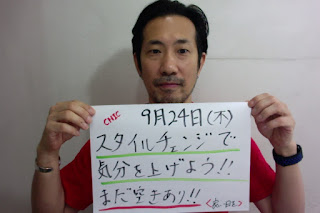 CHIC
9月24日(木)
スタイルチェンジで
気分を上げよう!!
まだ空きあり!!